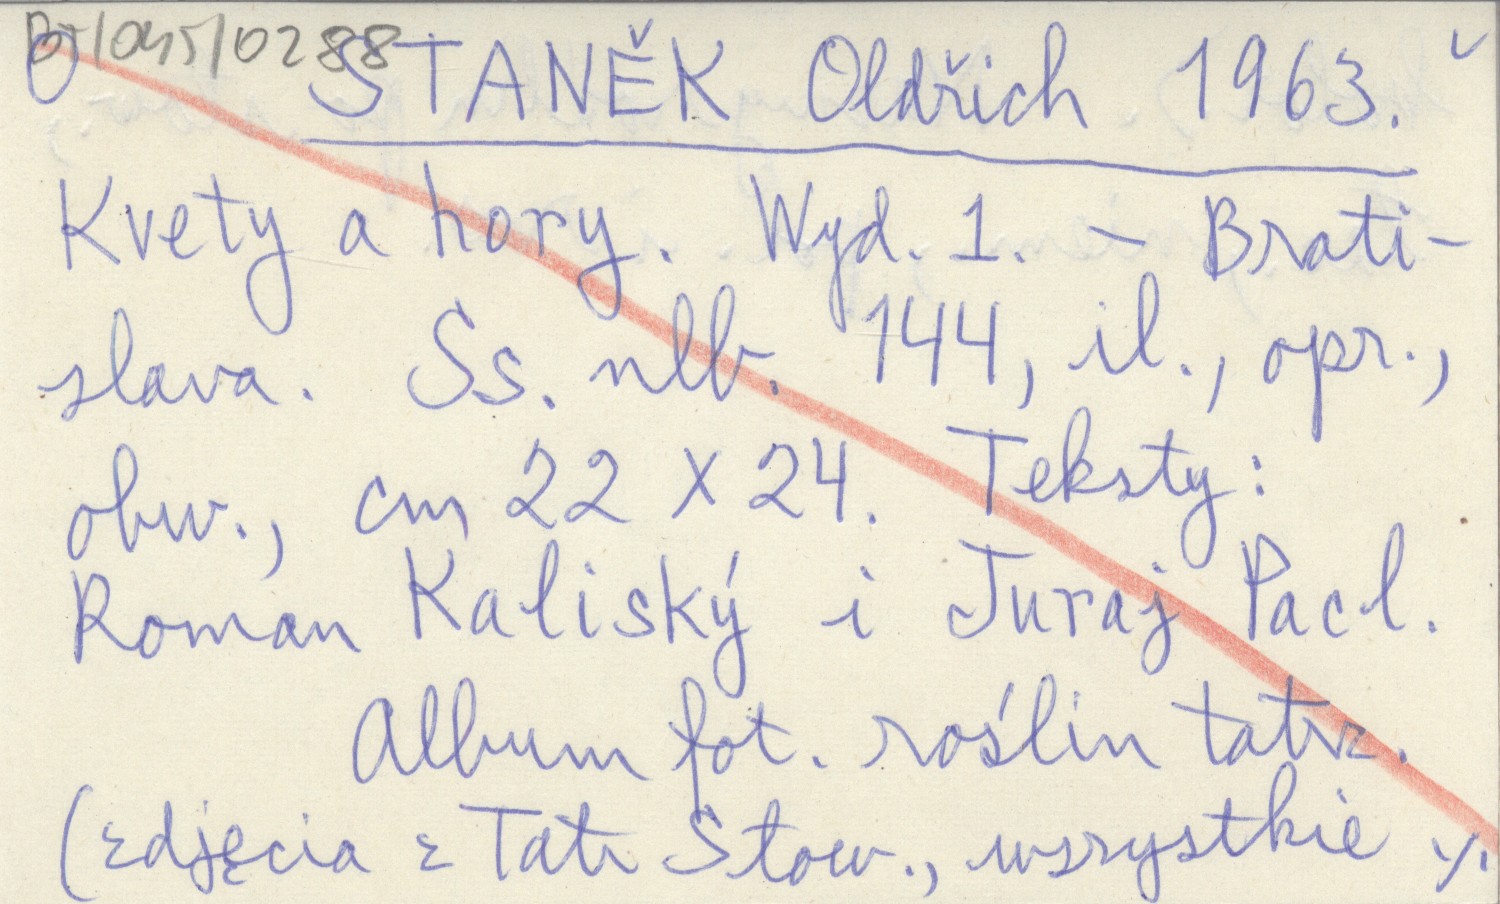 B-/045/0288
O STANĚK Oldřich 1963. v
Kvety a hory. Wyd. 1. – Brati-
slava. Ss. nlb. 144, il., opr.,
obw., cm 22 x 24. Teksty:
Roman Kaliský i Juraj Pacl.
Album fot. roślin tatrz.
(zdjęcia z Tatr Słow., wszystkie